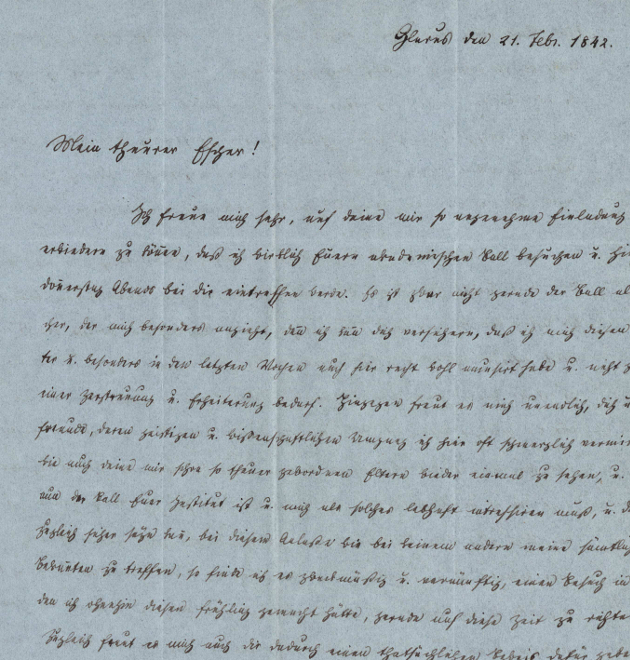 Glarus den 21. Febr. 1842.
Mein theurer Escher!
Ich freue mich sehr, auf deine mir so angenehme Einladung
erwiedern zu können, daß ich wirklich Euern akademischen Ball besuchen u.
Donnerstag Abends bei dir eintreffen werde. Es ist zwar nicht gerade der Ball als
her, der mich besonders anzieht, denn ich kan dich versichern, daß ich mich diesen
ter u. besonders in den letzten Wochen auch hier recht wohl amusirt habe u. nicht
einer Zerstreuung u. Erheiterung bedarf. Hingegen freut es mich unendlich, dich u.
Freunde, deren geistigen u. wissenschaftlichen Umgang ich hier oft schmerzlich
wie auch deine mir schon so theuer gewordnen Eltern wieder einmal zu sehen, u.
nun der Ball Euer Institut ist u. mich als solches lebhaft intressiren muß, u.
zugleich sicher seyn kan, bei diesem Anlaße wie bei keinem andern meine sämtlichen
Bekanten zu treffen, so finde ich es zweckmäßig u. vernünftig, einen Besuch in
den ich ohnehin diesen Frühling gemacht hätte, gerade auf diese Zeit zu
Zugleich freut es mich auch dir dadurch einen thatsächlichen Beweis dafür